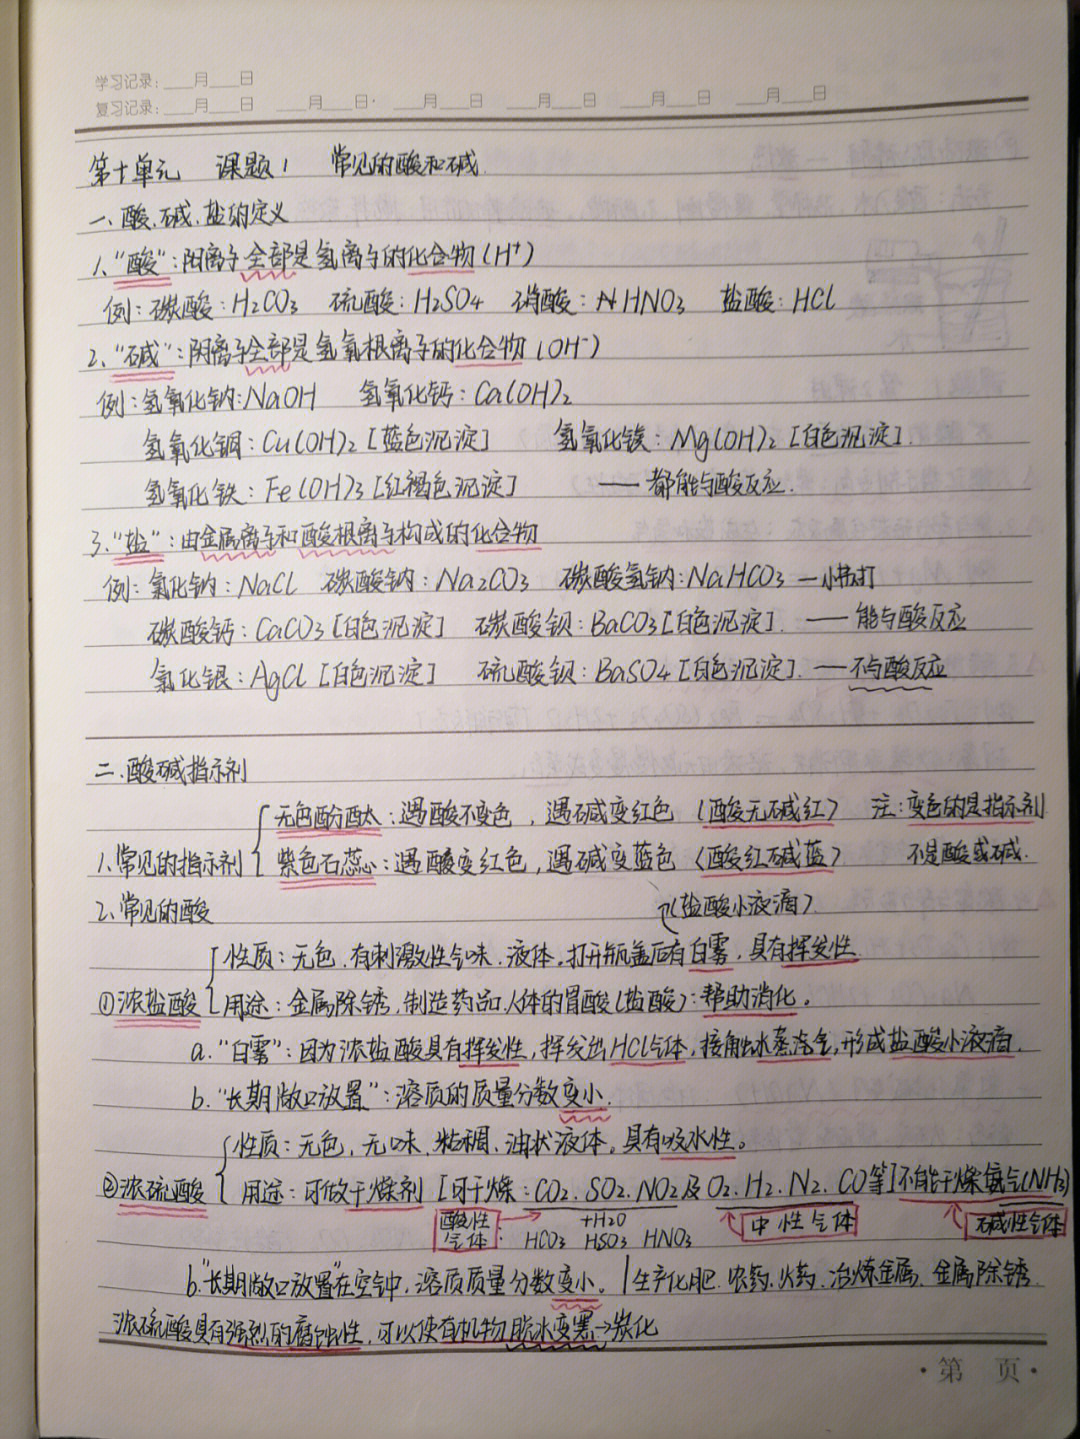 学习记录:___月___日
复习记录:___月___日 ___月___日· ___月___日 ___月___日 ___月___日 ___月___日
第十单元 课题1 常见的酸和碱
一、酸、碱、盐的定义
1、“酸”:阳离子全部是氢离子的化合物(H⁺)
例:碳酸:H₂CO₃ 硫酸:H₂SO₄ 硝酸:HNO₃ 盐酸:HCl
2、“碱”:阴离子全部是氢氧根离子的化合物(OH⁻)
例:氢氧化钠:NaOH 氢氧化钙:Ca(OH)₂
氢氧化铜:Cu(OH)₂[蓝色沉淀] 氢氧化镁:Mg(OH)₂[白色沉淀].
氢氧化铁:Fe(OH)₃[红褐色沉淀] ——都能与酸反应.
3、“盐”:由金属离子和酸根离子构成的化合物
例:氯化钠:NaCl 碳酸钠:Na₂CO₃ 碳酸氢钠:NaHCO₃—小苏打
碳酸钙:CaCO₃[白色沉淀] 碳酸钡:BaCO₃[白色沉淀].——能与酸反应
氯化银:AgCl[白色沉淀] 硫酸钡:BaSO₄[白色沉淀].——不与酸反应
二、酸碱指示剂
无色酚酞:遇酸不变色,遇碱变红色(酸无碱红) 注:变色的是指示剂
1、常见的指示剂 紫色石蕊:遇酸变红色,遇碱变蓝色(酸红碱蓝) 不是酸或碱.
2、常见的酸 (盐酸小液滴).
性质:无色、有刺激性气味、液体,打开瓶盖后有白雾,具有挥发性
①浓盐酸 用途:金属除锈,制造药品,人体的胃酸(盐酸):帮助消化。
a.“白雾”:因为浓盐酸具有挥发性,挥发出HCl气体,接触水蒸汽,形成盐酸小液滴.
b.“长期敞口放置”:溶质的质量分数变小.
性质:无色,无味、粘稠、油状液体。具有吸水性。
②浓硫酸 用途:可做干燥剂[可干燥:CO₂、SO₂、NO₂及O₂、H₂、N₂、CO等]不能干燥氨气(NH₃)
酸性气体: +H₂O 中性气体 碱性气体
HCO₃ HSO₃ HNO₃
b.“长期敞口放置”在空气中,溶质质量分数变小。/生产化肥、农药、火药、冶炼金属、金属除锈.
浓硫酸具有强烈的腐蚀性,可以使有机物脱水变黑→炭化
·第 页·